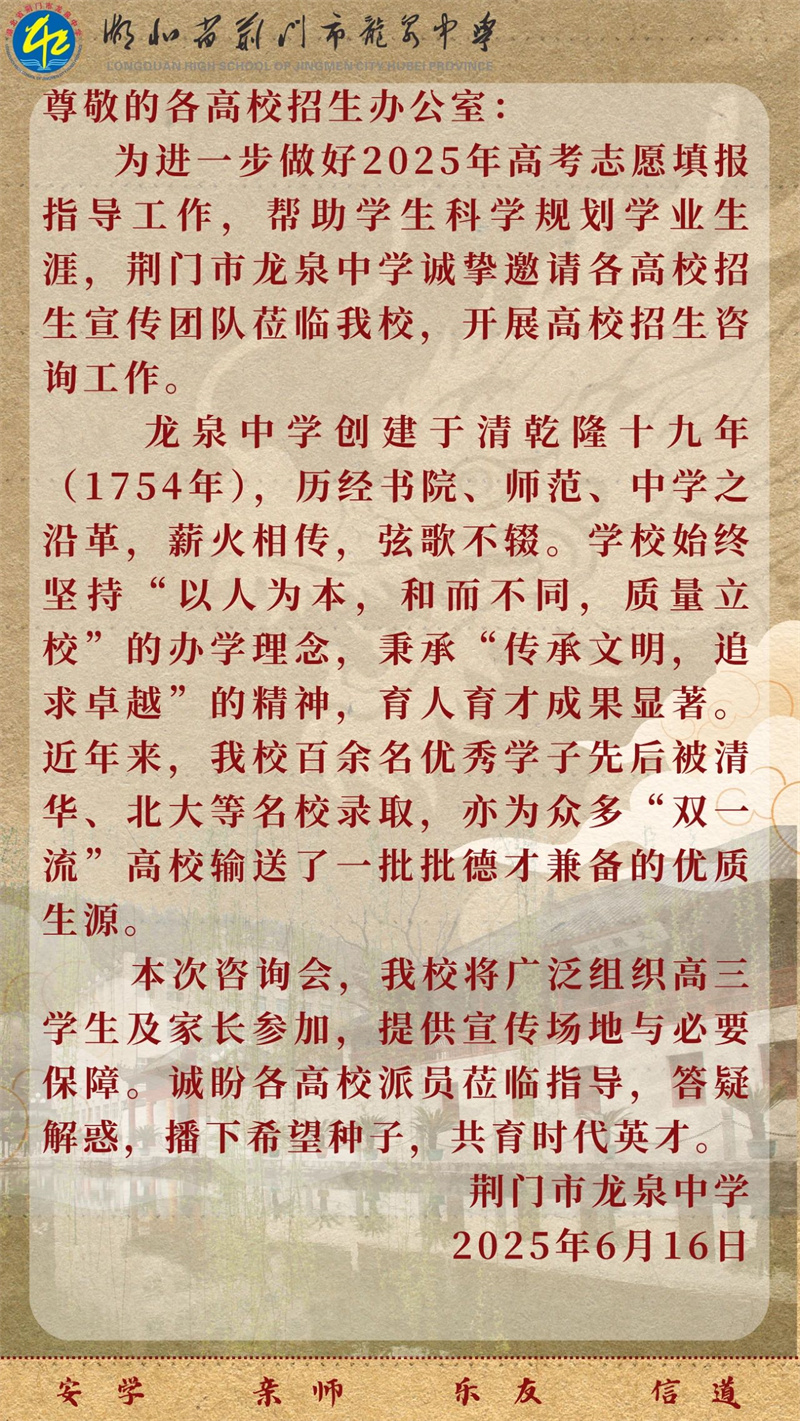 湖北省荆门市龍泉中學
LONGQUAN HIGH SCHOOL OF JINGMEN CITY HUBEI PROVINCE
尊敬的各高校招生办公室：
为进一步做好2025年高考志愿填报
指导工作，帮助学生科学规划学业生
涯，荆门市龙泉中学诚挚邀请各高校招
生宣传团队莅临我校，开展高校招生咨
询工作。
龙泉中学创建于清乾隆十九年
（1754年），历经书院、师范、中学之
沿革，薪火相传，弦歌不辍。学校始终
坚持“以人为本，和而不同，质量立
校”的办学理念，秉承“传承文明，追
求卓越”的精神，育人育才成果显著。
近年来，我校百余名优秀学子先后被清
华、北大等名校录取，亦为众多“双一
流”高校输送了一批批德才兼备的优质
生源。
本次咨询会，我校将广泛组织高三
学生及家长参加，提供宣传场地与必要
保障。诚盼各高校派员莅临指导，答疑
解惑，播下希望种子，共育时代英才。
荆门市龙泉中学
2025年6月16日
安学 亲师 乐友 信道